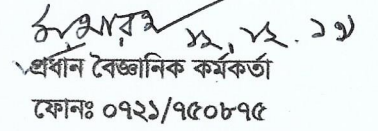 ১২.১২.১৭
প্রধান বৈজ্ঞানিক কর্মকর্তা
ফোনঃ ০৭২১/৭৫০৮৭৫